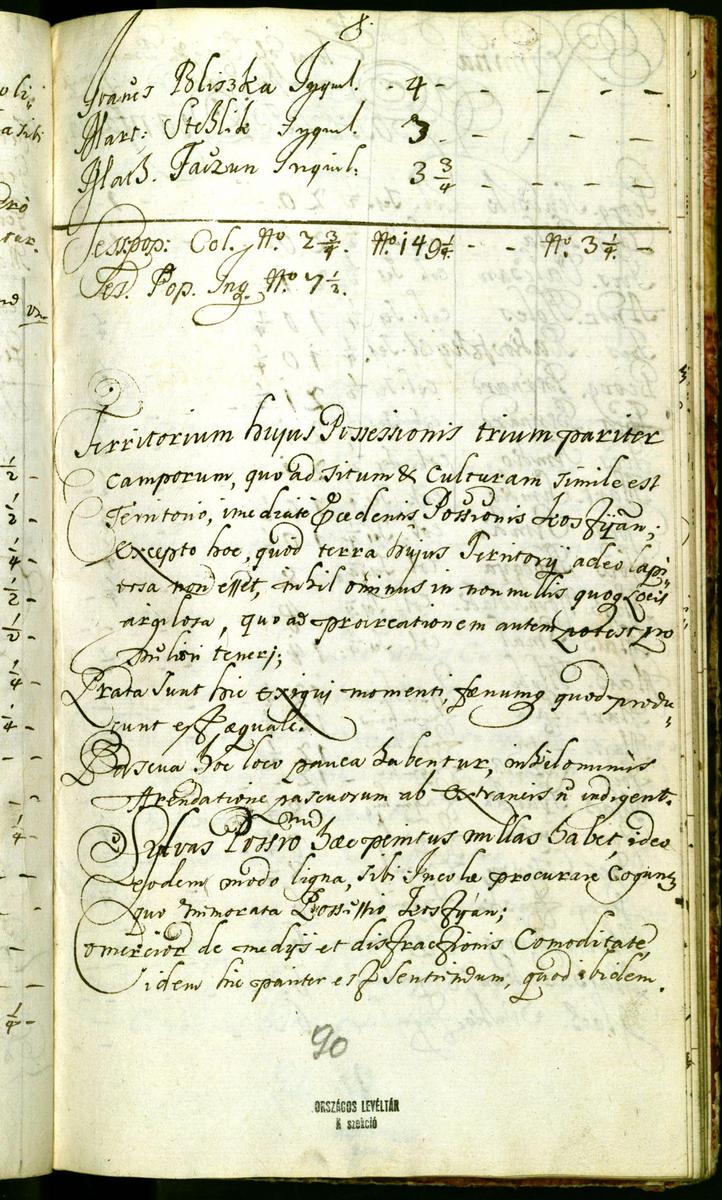 8.
Joanes Bliszka Inquil. - 4 - - - -
Mart: Stehlik Inquil. 3 - - - -
Math. Taczun Inquil: 3 3/4 - - - -
Sess. pop: Col. No. 2 3/4. No. 149 1/4 - - No. 3 1/4 -
Ses. Pop. Inq. No. 7 1/2.
Territorium hujus Possessionis trium pariter
camporum, quo ad situm & Culturam simile est
Territorio, imediatè Præcedentis Possionis Kosztján;
excepto hoc, quod terra hujus Territorij adeo lapi„
dosa non esset, nihil ominus in non nullis quoq Locis
argilosa, quo ad procreationem autem potest pro
teneri;
Prata sunt hic exigui momenti, fænumq quod produ„
cunt est æquale.
Pascua hoc loco pauca habentur, nihilominus
Arendatione pascuorum ab Extraneis n indigent.
Sylvas Possio hæc penitus nullas habet, ideo
eodem modo ligna, sibi Incolæ procurare Cogunt
quo memorata Possessio Kosztyán;
Comercior de medijs et distractionis Comoditate,
idem hic pariter est sentiendum, quod ibidem.
90
ORSZÁGOS LEVÉLTÁR
K szekció